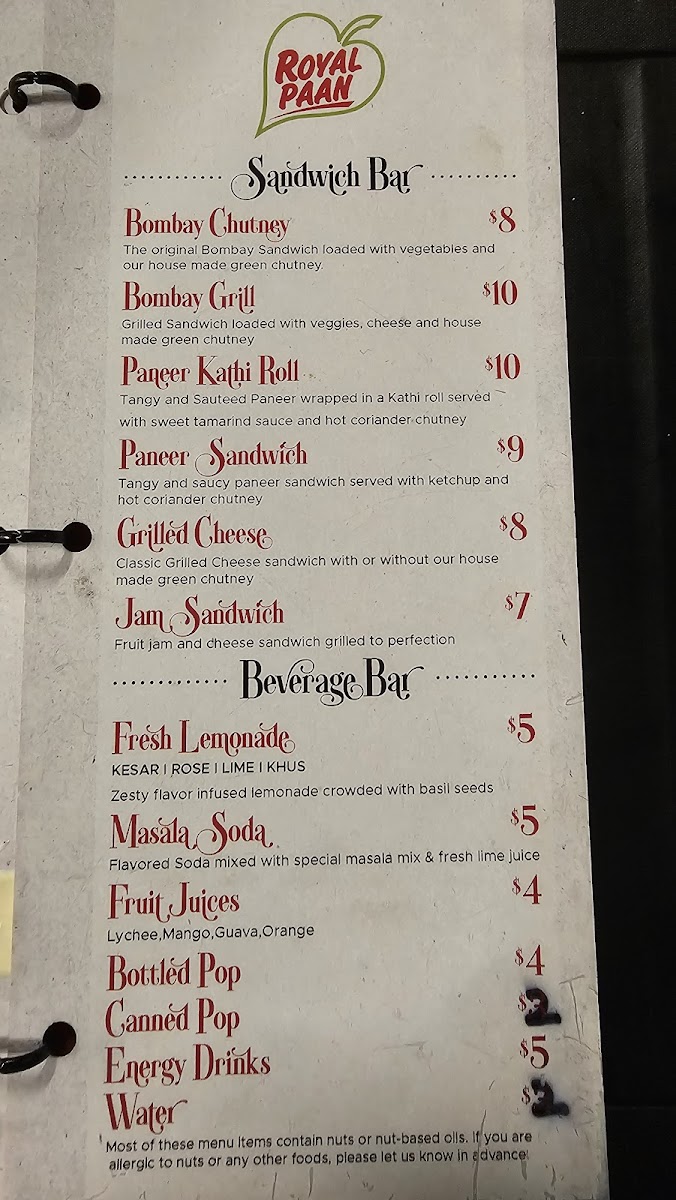 ROYAL
PAAN
Sandwich Bar
Bombay Chutney $8
The original Bombay Sandwich loaded with vegetables and
our house made green chutney.
Bombay Grill $10
Grilled Sandwich loaded with veggies, cheese and house
made green chutney
Paneer Kathi Roll $10
Tangy and Sauteed Paneer wrapped in a Kathi roll served
with sweet tamarind sauce and hot coriander chutney
Paneer Sandwich $9
Tangy and saucy paneer sandwich served with ketchup and
hot coriander chutney
Grilled Cheese $8
Classic Grilled Cheese sandwich with or without our house
made green chutney
Jam Sandwich $7
Fruit jam and cheese sandwich grilled to perfection
Beverage Bar
Fresh Lemonade $5
KESAR | ROSE | LIME | KHUS
Zesty flavor infused lemonade crowded with basil seeds
Masala Soda $5
Flavored Soda mixed with special masala mix & fresh lime juice
Fruit Juices $4
Lychee,Mango,Guava,Orange
Bottled Pop $4
Canned Pop $
Energy Drinks $5
Water $
Most of these menu items contain nuts or nut-based oils. If you are
allergic to nuts or any other foods, please let us know in advance.